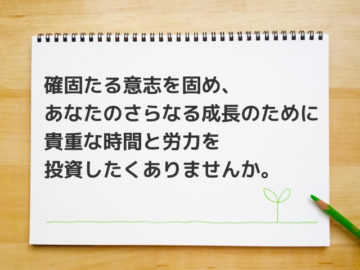 確固たる意志を固め、
あなたのさらなる成長のために
貴重な時間と労力を
投資したくありませんか。